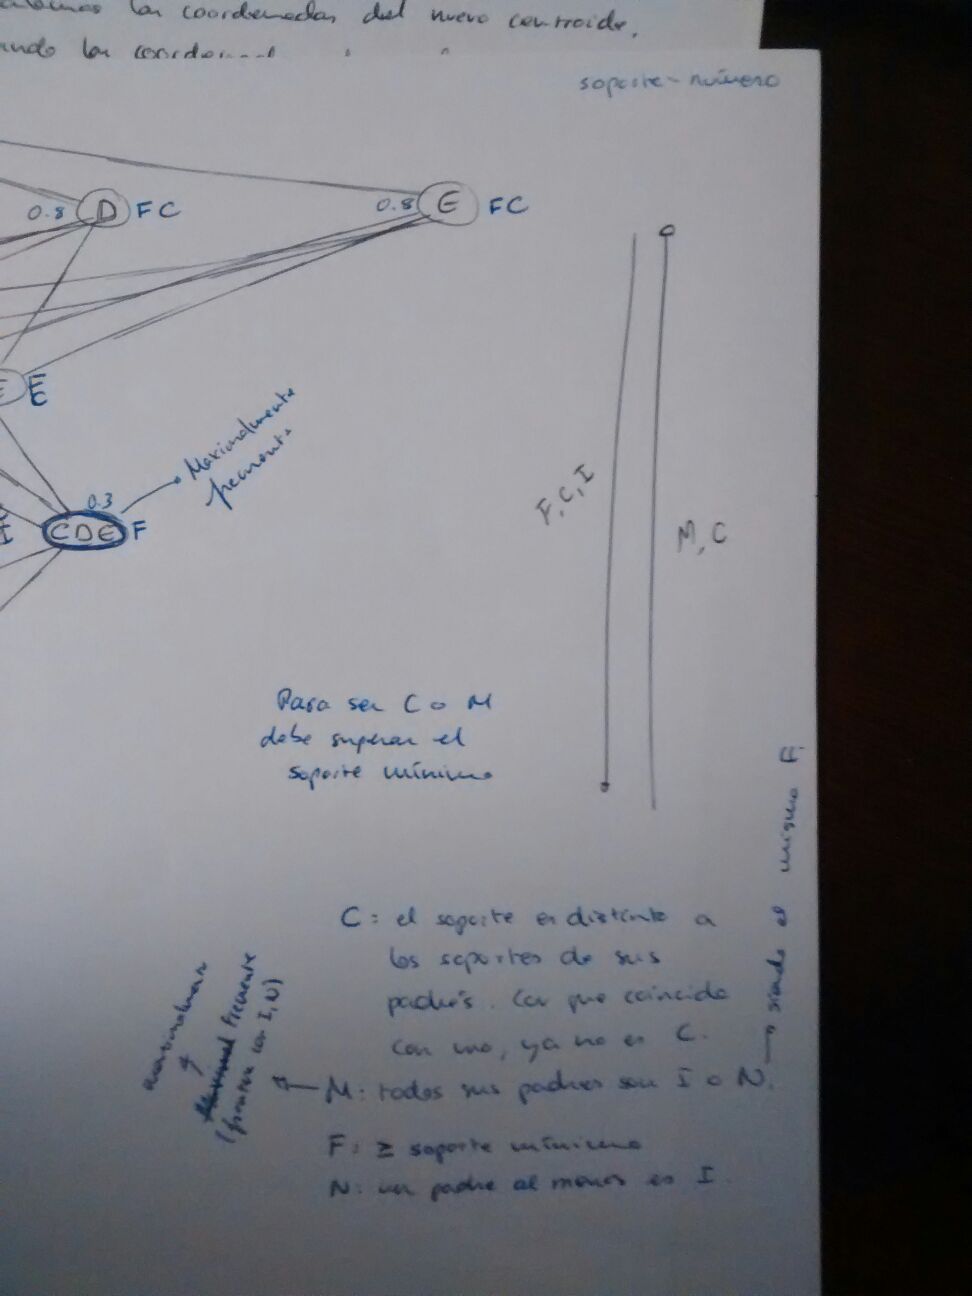 las coordenadas del nuevo centroide,
soporte - número
0.8 D FC
0.8 E FC
E
Maximalmente
frecuente
0.3
I CDE F
F, C, I
M, C
Para ser C o M
debe superar el
soporte mínimo
C: el soporte es distinto a
los soportes de sus
padres. Con que coincida
con uno, ya no es C.
M: todos sus padres son I o N.
siendo él mismo F.
Frecuente
(frontera con I, N)
F: ≥ soporte mínimo
N: un padre al menos es I.